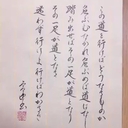 この道を行けばどうなるものか
危ぶむなかれ危ぶめば道はなし
踏み出せばその一足が道となり
その一足が道となる
迷わず行けよ行けばわかるさ